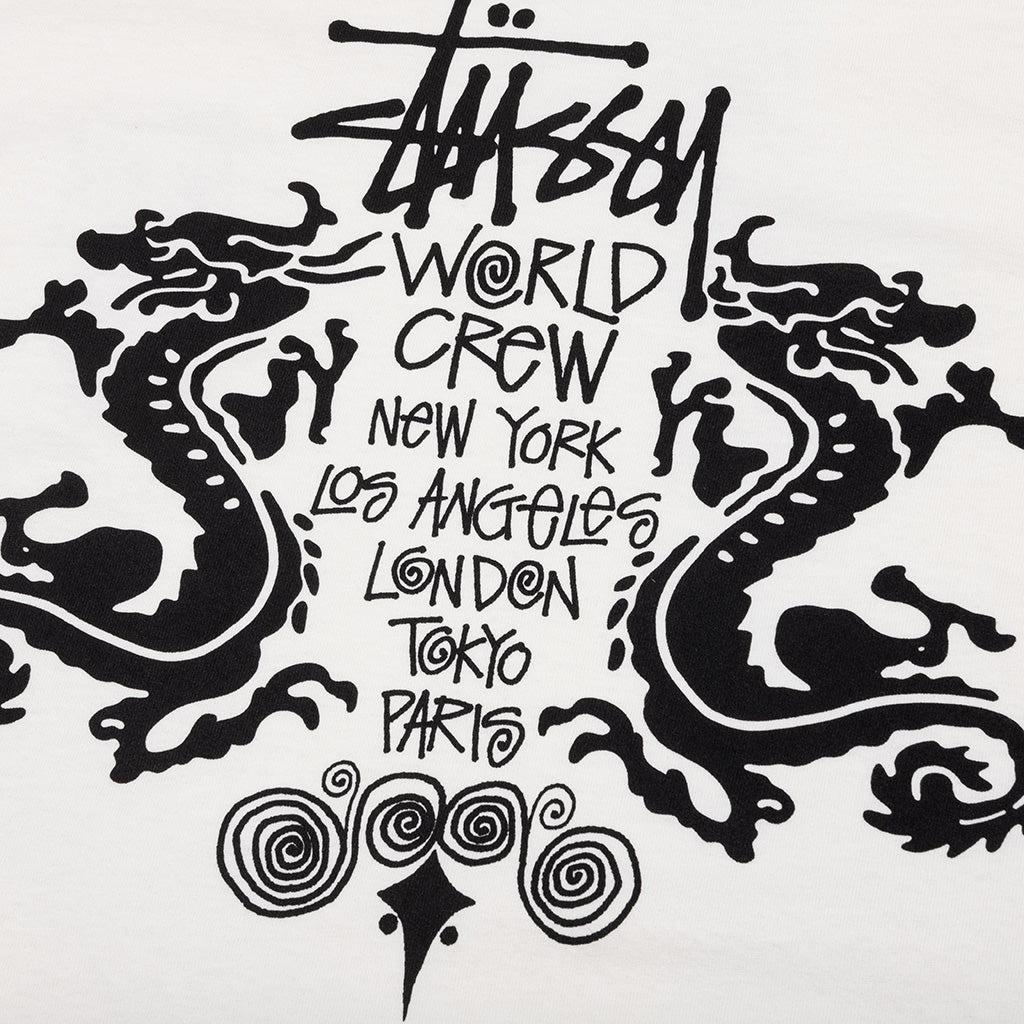 Stüssy
WORLD
CREW
NEW YORK
LOS ANGELES
LONDON
TOKYO
PARIS